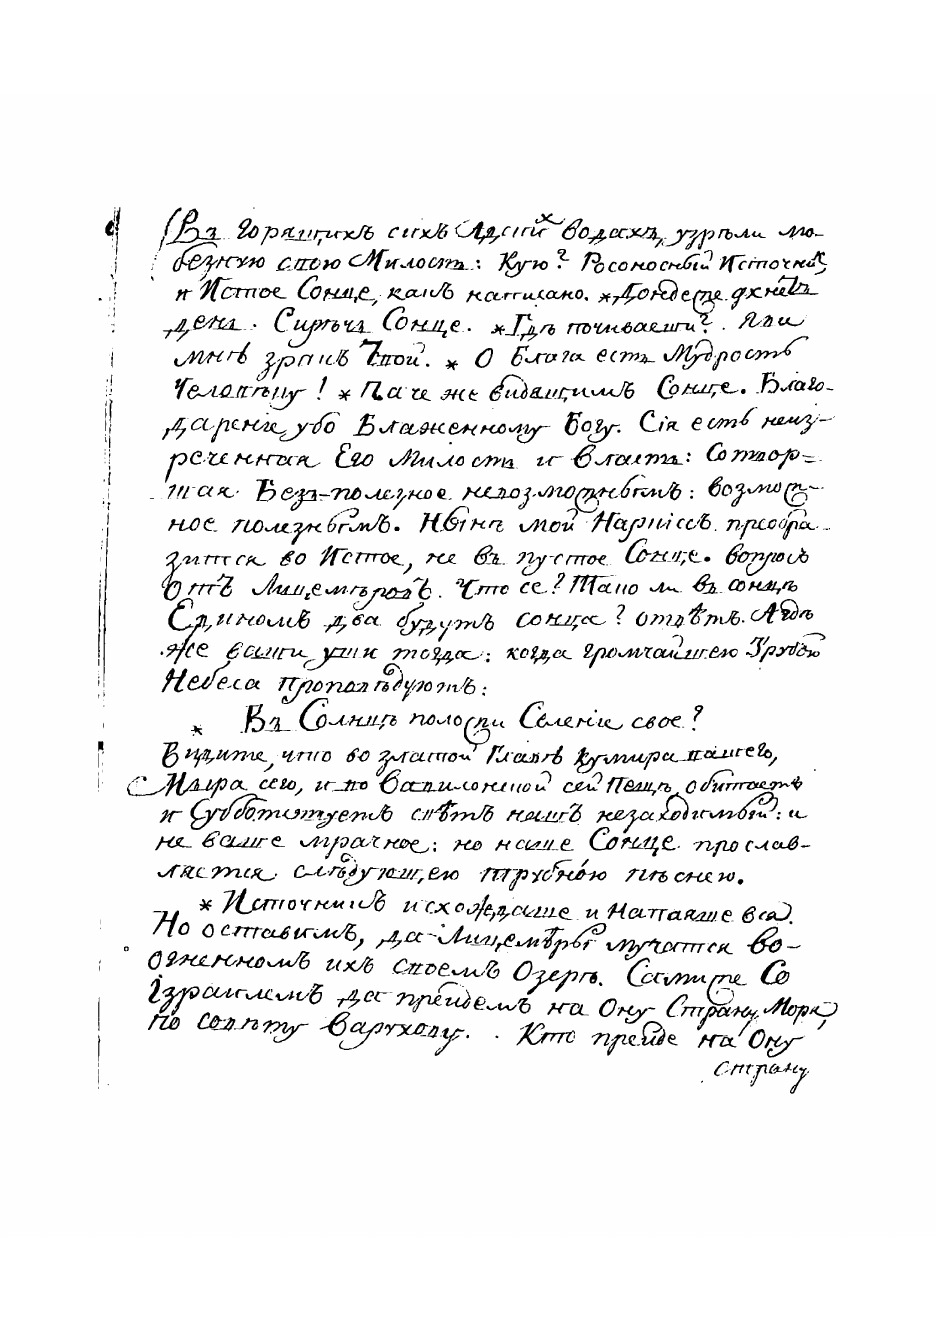 Въ горящихъ сихъ Адских водахъ, узрѣли лю-
безную свою Милость: Кую? Росоносный Источникъ,
и Истое Сонце, какъ написано. * Дондеже дхнетъ
день. Сирѣчь Сонце. * Гдѣ почиваеши? Яви
мнѣ зракъ Твой. * О Блага есть Мудрость
Человѣку! * Паче же видящимъ Сонце. Благо-
дареніе убо Блаженному Богу. Сія есть неиз-
реченная Его Милость и власть: Сотвор-
шая Безъ-полезное невозможнымъ: возмож-
ное полезнымъ. Нынѣ мой Наркіссъ преобра-
зится во Истое, не въ пустое Сонце. вопросъ
Отъ Лицемѣровъ. Что се? Тако ли въ сонцѣ
Единомъ два будутъ сонца? отвѣтъ. А гдѣ
же ваши уши тогда: когда громчайшею Трубою
Небеса проповѣдуютъ:
* Въ Солнцѣ положи Селеніе свое?
Видите, что во златой Главѣ Кумира вашего,
Мыра сего, и во Вавилонской сей Пещи, обитаетъ
и Субботствуетъ свѣтъ нашъ незаходимый: и
не ваше мрачное: но наше Сонце прослав-
ляется слѣдующею трубною пѣснею.
* Источникъ исхождаше и Напаяше вся.
Но оставимъ, да Лицемѣры мучатся во-
огненномъ ихъ своемъ Озерѣ. Самите Со
Ізраилемъ да прейдемъ на Ону Страну Моря,
по совѣту Варухову. Кто прейде на Ону
страну